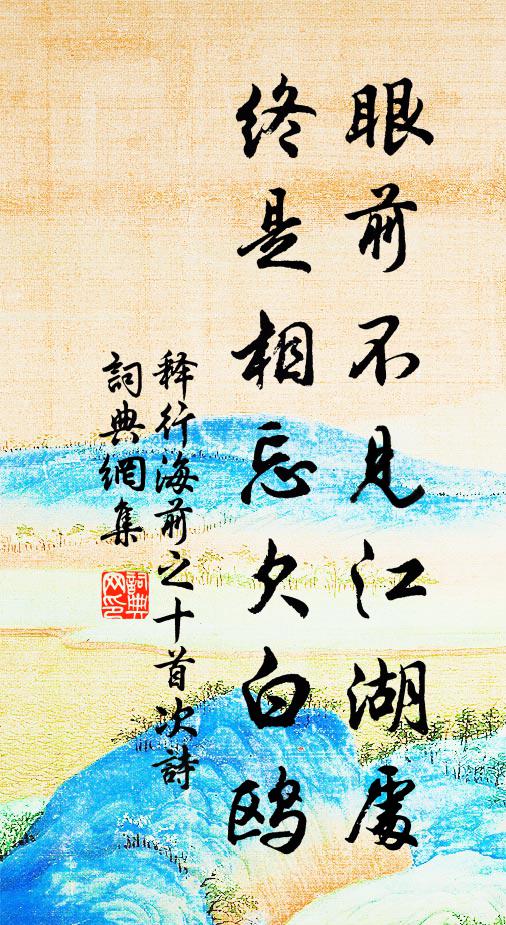 眼前不見江湖處
終是相忘欠白鴎
释行海前之十首次詩
詞典網集
詞典网印